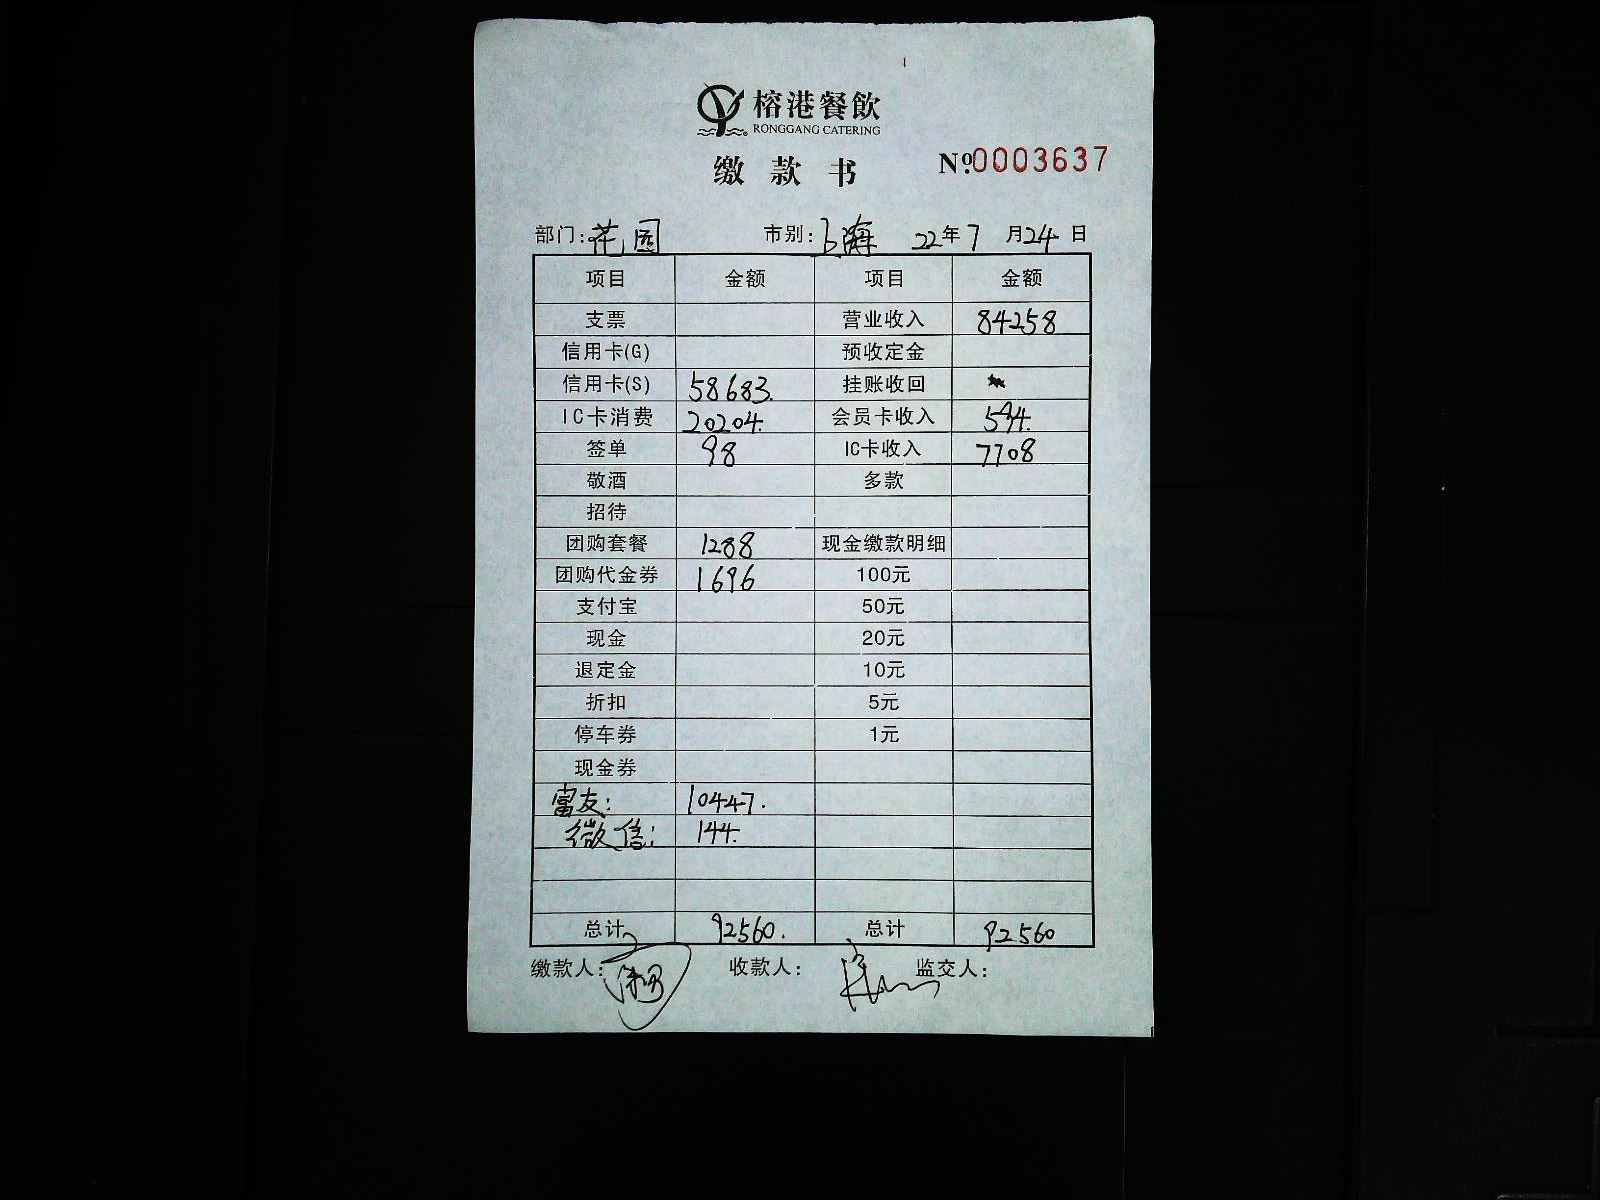 榕港餐飲
RONGGANG CATERING
缴款书 Nº.0003637
部门:花园 市别:上海 22年7月24日
项目 金额 项目 金额
支票 营业收入 84258
信用卡(G) 预收定金
信用卡(S) 58683. 挂账收回
IC卡消费 20204. 会员卡收入 594.
签单 98 IC卡收入 7708
敬酒 多款
招待
团购套餐 1288 现金缴款明细
团购代金券 1696 100元
支付宝 50元
现金 20元
退定金 10元
折扣 5元
停车券 1元
现金券
富友: 10447.
微信: 144.
总计 92560. 总计 92560
缴款人: 收款人: 监交人: